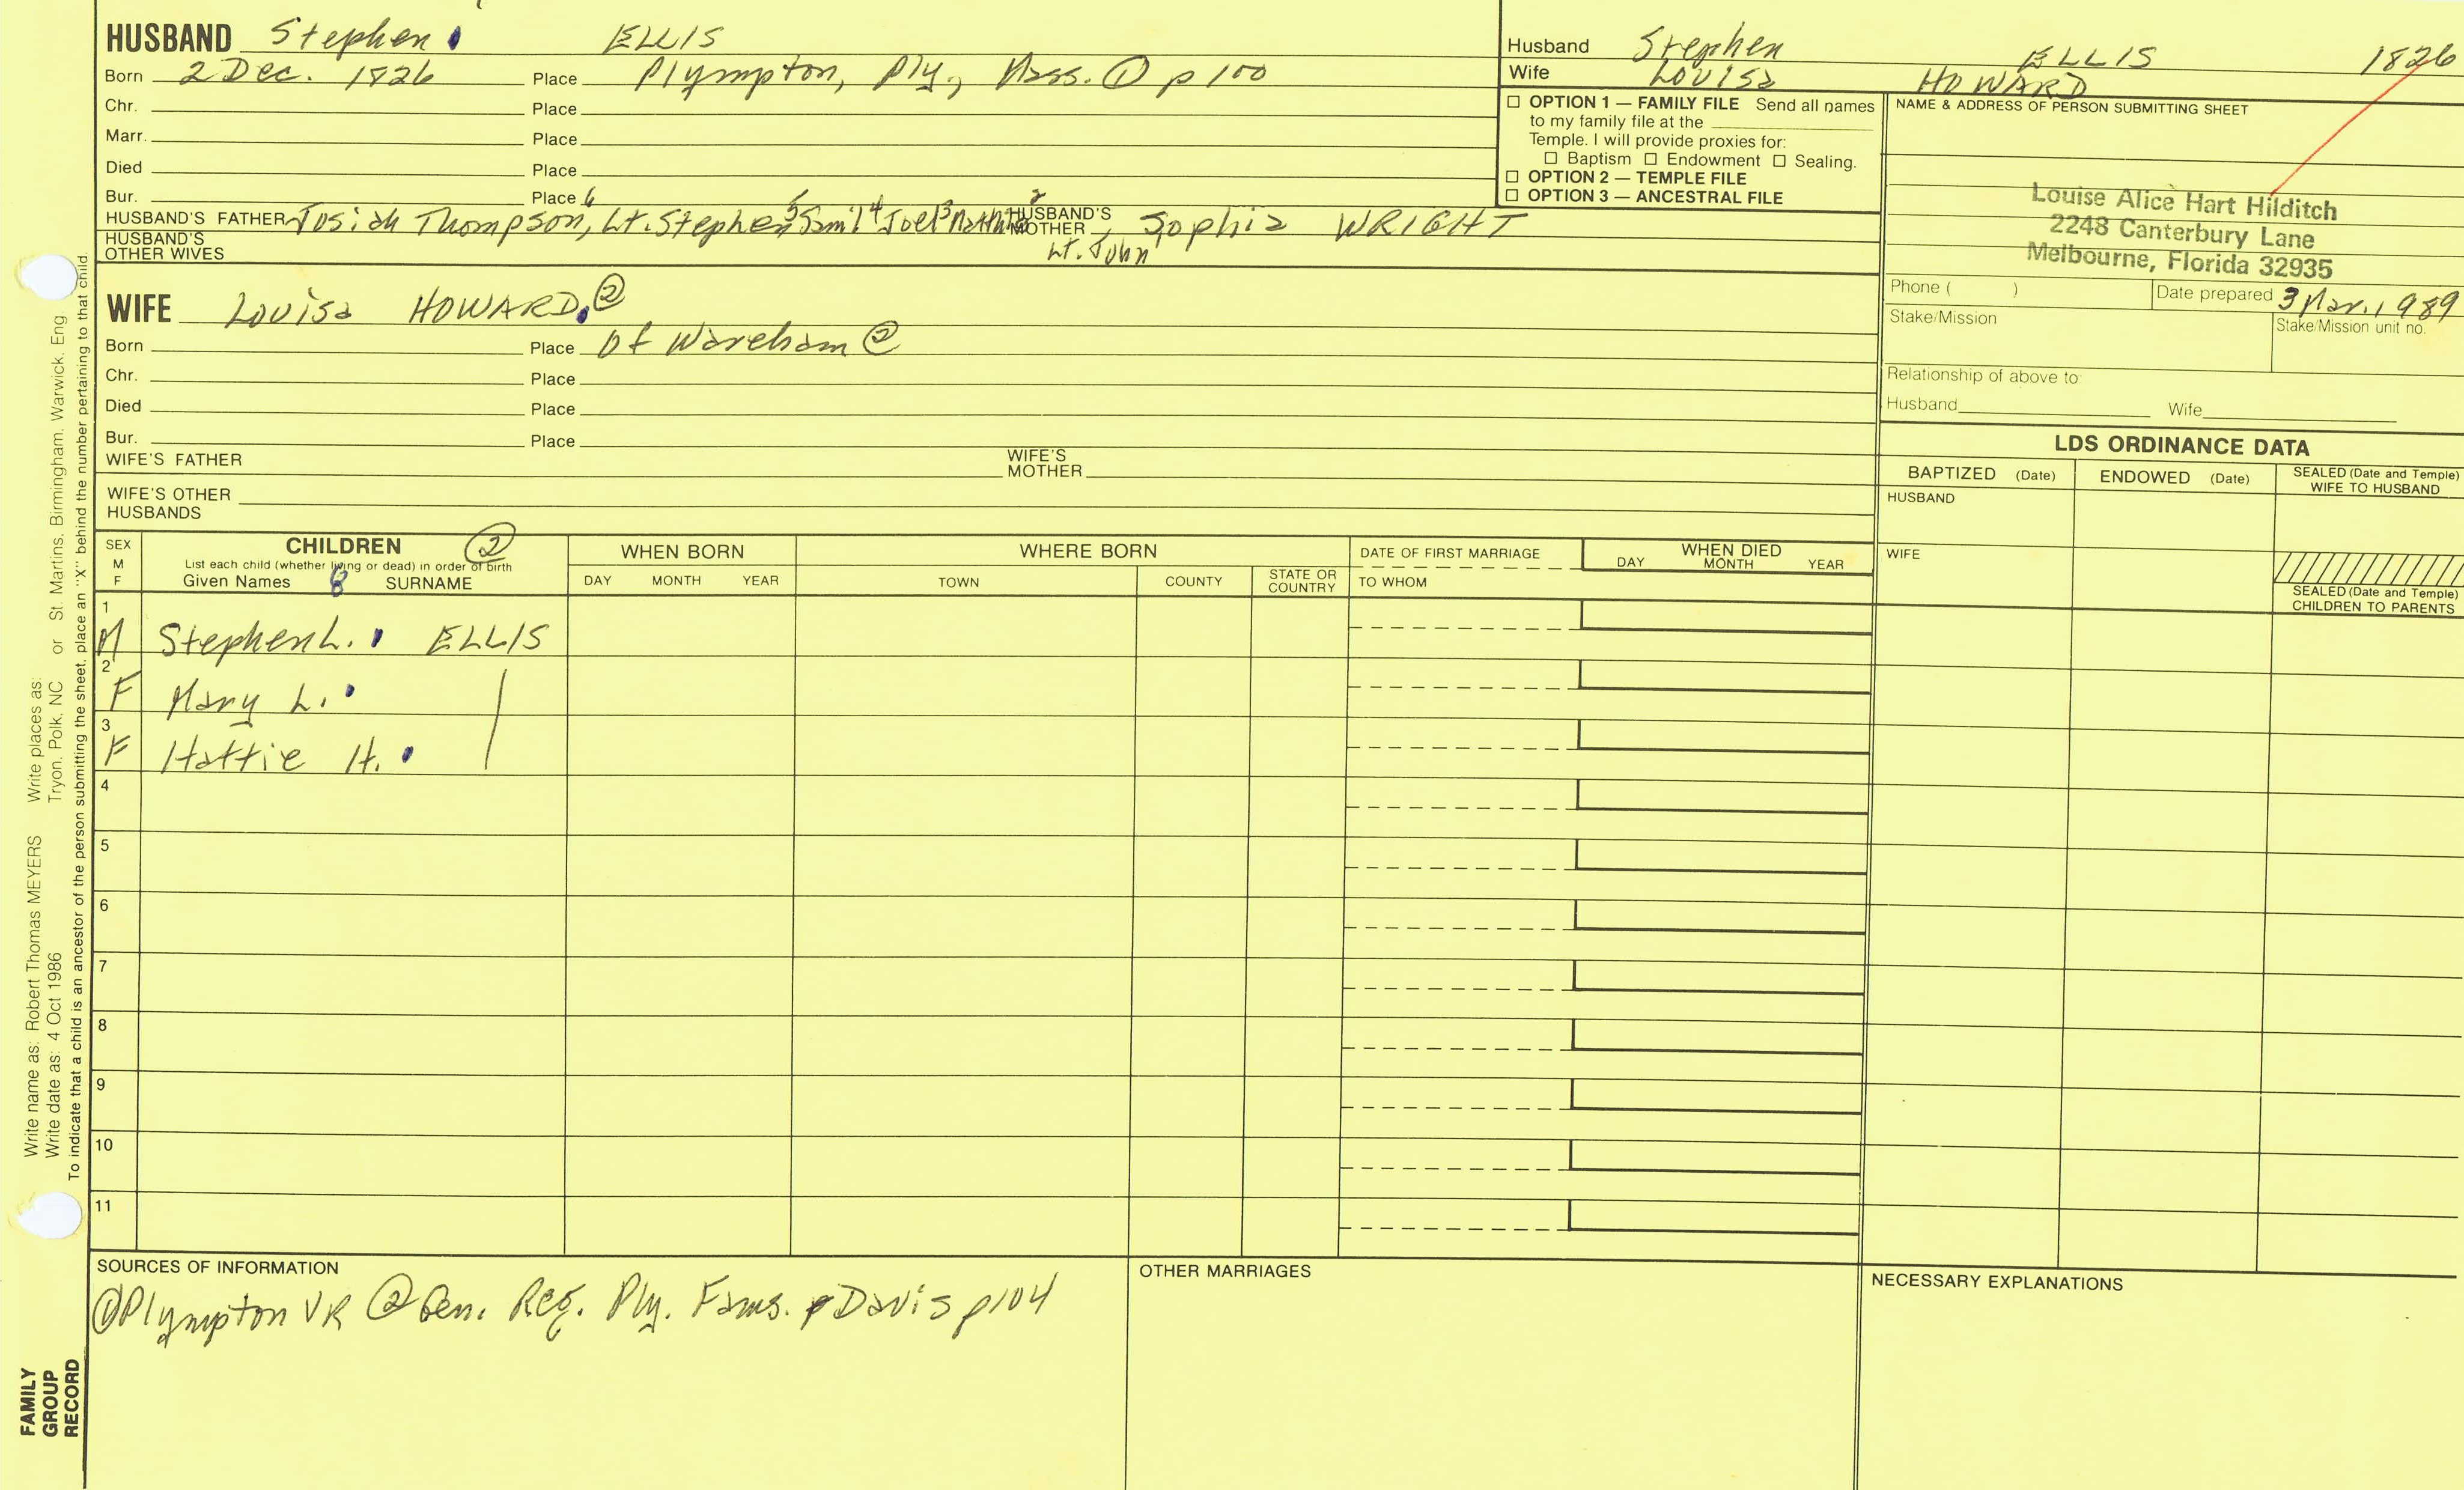 HUSBAND Stephen ELLIS
Born 2 Dec. 1826 Place Plympton, Ply, Mass. ① p 100
Chr. Place
Marr. Place
Died Place
Bur. Place
HUSBAND'S FATHER Josiah Thompson,⁶ Lt. Stephen⁵ Saml⁴ Joel³ HUSBAND'S MOTHER Sophia WRIGHT
HUSBAND'S OTHER WIVES Lt. John
Husband Stephen ELLIS 1826
Wife Louisa HOWARD
☐ OPTION 1 — FAMILY FILE Send all names
to my family file at the
Temple. I will provide proxies for:
☐ Baptism ☐ Endowment ☐ Sealing.
☐ OPTION 2 — TEMPLE FILE
☐ OPTION 3 — ANCESTRAL FILE
NAME & ADDRESS OF PERSON SUBMITTING SHEET
Louise Alice Hart Hilditch
2248 Canterbury Lane
Melbourne, Florida 32935
Phone ( ) Date prepared 3 Mar. 1989
Stake/Mission Stake/Mission unit no.
Relationship of above to:
Husband Wife
WIFE Louisa HOWARD ②
Born Place Of Wareham ②
Chr. Place
Died Place
Bur. Place
WIFE'S FATHER WIFE'S MOTHER
WIFE'S OTHER HUSBANDS
LDS ORDINANCE DATA
BAPTIZED (Date) ENDOWED (Date) SEALED (Date and Temple) WIFE TO HUSBAND
HUSBAND
WIFE
SEALED (Date and Temple)
CHILDREN TO PARENTS
SEX M F
CHILDREN ②
List each child (whether living or dead) in order of birth
Given Names 8 SURNAME
WHEN BORN
DAY MONTH YEAR
WHERE BORN
TOWN COUNTY STATE OR COUNTRY
DATE OF FIRST MARRIAGE
TO WHOM
WHEN DIED
DAY MONTH YEAR
1 M Stephen L. ELLIS
2 F Mary L.
3 F Hattie H.
4
5
6
7
8
9
10
11
SOURCES OF INFORMATION
① Plympton VR ② Gen. Reg. Ply. Fams. Davis p104
OTHER MARRIAGES
NECESSARY EXPLANATIONS
Write name as: Robert Thomas MEYERS Write places as:
Write date as: 4 Oct 1986 Tryon, Polk, NC or St. Martins, Birmingham, Warwick, Eng
To indicate that a child is an ancestor of the person submitting the sheet, place an "X" behind the number pertaining to that child.
FAMILY
GROUP
RECORD